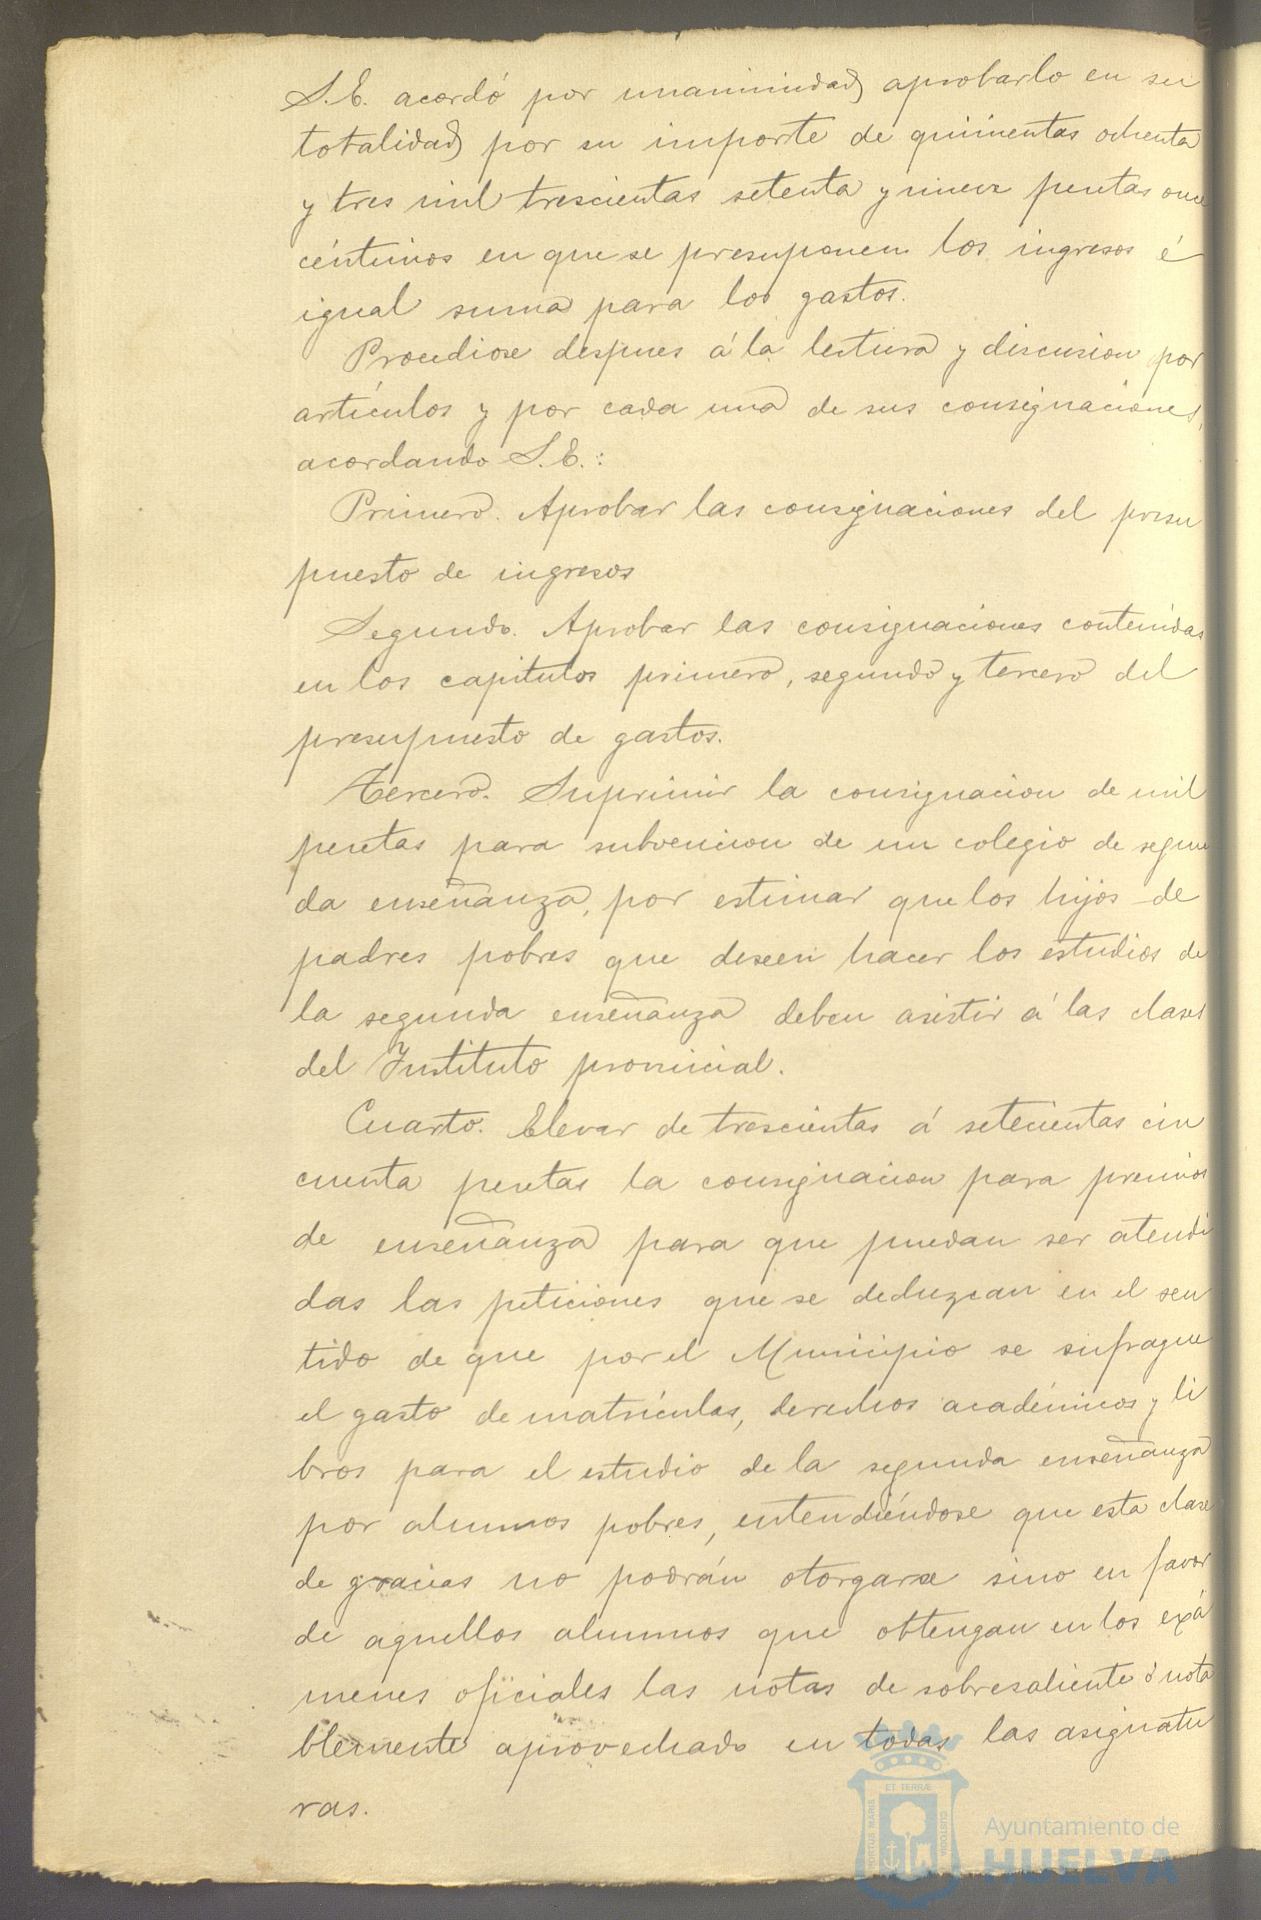 S.E. acordó por unanimidad aprobarlo en su
totalidad por su importe de quinientas ochenta
y tres mil trescientas setenta y nueve pesetas once
céntimos en que se presuponen los ingresos é
igual suma para los gastos.
Procediose despues á la lectura y discusion por
artículos y por cada una de sus consignaciones,
acordando S.E.:
Primero. Aprobar las consignaciones del presu
puesto de ingresos
Segundo. Aprobar las consignaciones contenidas
en los capitulos primero, segundo y tercero del
presupuesto de gastos.
Tercero. Suprimir la consignacion de mil
pesetas para subvencion de un colegio de segun
da enseñanza, por estimar que los hijos de
padres pobres que deseen hacer los estudios de
la segunda enseñanza deben asistir á las clases
del Instituto provincial.
Cuarto. Elevar de trescientas á setecientas cin
cuenta pesetas la consignacion para premios
de enseñanza para que puedan ser atendi
das las peticiones que se deduzcan en el sen
tido de que por el Municipio se sufrague
el gasto de matrículas, derechos académicos y li
bros para el estudio de la segunda enseñanza
por alumnos pobres, entendiéndose que esta clase
de gracias no podrán otorgarse sino en favor
de aquellos alumnos que obtengan en los exá
menes oficiales las notas de sobresaliente ó nota
blemente aprovechado en todas las asignatu
ras.
ET TERRÆ
PORTUS MARIS
CUSTODIA
Ayuntamiento de
HUELVA